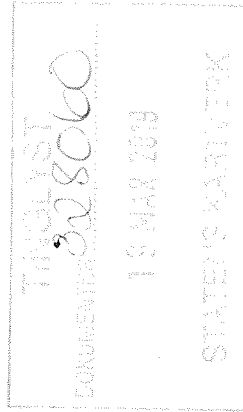 TINGLYST
DOKUMENTNR. 328060
19 MAR 2019
STATENS KARTVERK